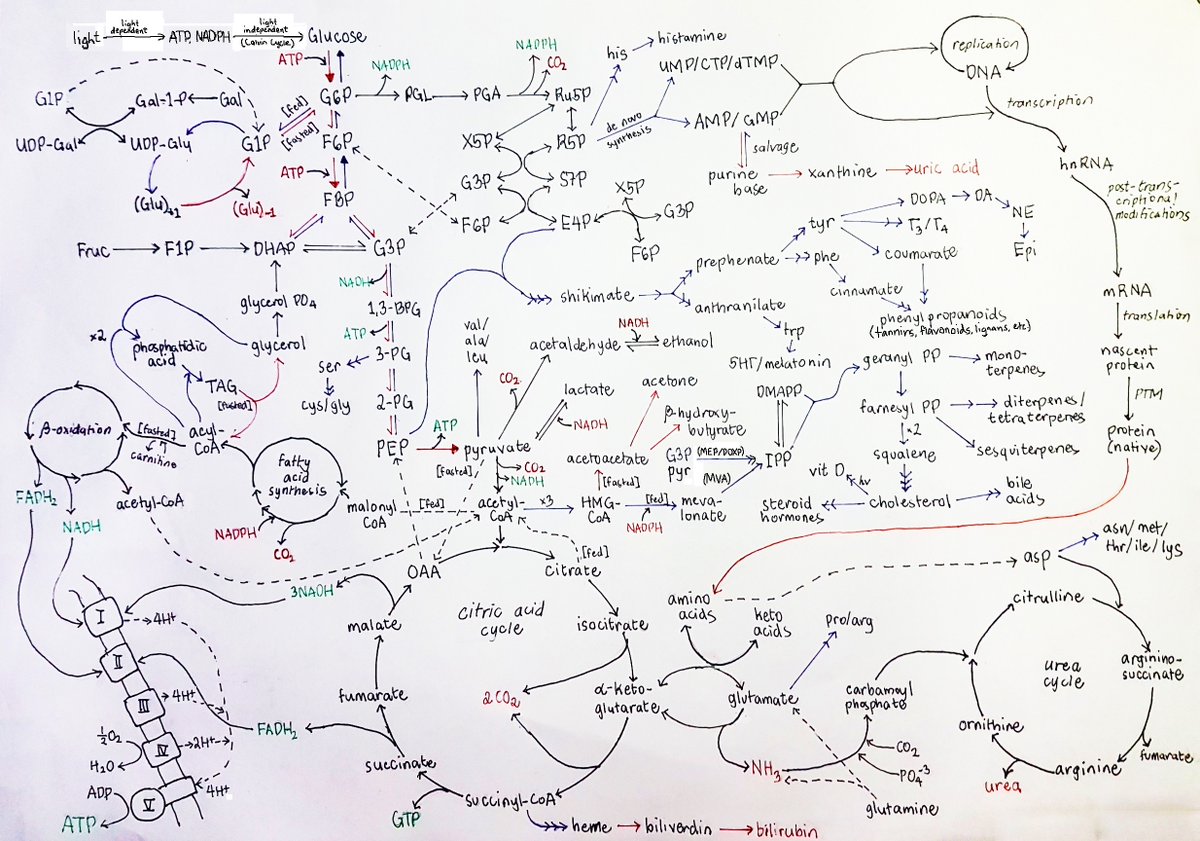 light
light dependent
ATP, NADPH
light independent
(Calvin Cycle)
Glucose
ATP
G6P
NADPH
PGL
PGA
NADPH
CO₂
Ru5P
his
histamine
UMP/CTP/dTMP
replication
DNA
transcription
G1P
Gal-1-P
Gal
UDP-Gal
UDP-Glu
G1P
[fed]
[fasted]
F6P
X5P
R5P
de novo
synthesis
AMP/GMP
salvage
purine
base
xanthine
uric acid
hnRNA
post-trans-
criptional
modifications
(Glu)+1
(Glu)-1
ATP
FBP
G3P
S7P
X5P
G3P
F6P
E4P
F6P
tyr
DOPA
DA
NE
Epi
T₃/T₄
Fruc
F1P
DHAP
G3P
prephenate
phe
coumarate
cinnumate
NADH
glycerol PO₄
1,3-BPG
shikimate
anthranilate
phenyl propanoids
(tannins, flavanoids, lignans, etc)
mRNA
translation
x2
phosphatidic
acid
glycerol
ATP
3-PG
val/
ala/
leu
acetaldehyde
NADH
ethanol
trp
5HT/melatonin
geranyl PP
mono-
terpenes
nascent
protein
TAG
[fasted]
ser
cys/gly
2-PG
CO₂
lactate
acetone
DMAPP
farnesyl PP
diterpenes/
tetraterpenes
PTM
β-oxidation
[fasted]
carnitine
acyl-
CoA
fatty
acid
synthesis
PEP
ATP
pyruvate
[fasted]
NADH
β-hydroxy-
butyrate
acetoacetate
[fasted]
G3P
pyr
(MEP/DOXP)
(MVA)
IPP
x2
squalene
sesquiterpenes
protein
(native)
FADH₂
NADH
acetyl-CoA
NADPH
CO₂
malonyl
CoA
[fed]
CO₂
NADH
acetyl-
CoA
x3
HMG-
CoA
[fed]
NADPH
meva-
lonate
vit D
hv
steroid
hormones
cholesterol
bile
acids
OAA
citrate
[fed]
asp
asn/met/
thr/ile/lys
3NADH
malate
citric acid
cycle
isocitrate
amino
acids
keto
acids
pro/arg
citrulline
I
4H⁺
II
III
4H⁺
IV
2H⁺
V
4H⁺
½O₂
H₂O
ADP
ATP
fumarate
FADH₂
2CO₂
α-keto-
glutarate
glutamate
carbamoyl
phosphate
urea
cycle
arginino-
succinate
ornithine
fumarate
succinate
NH₃
CO₂
PO₄⁻³
urea
arginine
GTP
succinyl-CoA
glutamine
heme
biliverdin
bilirubin